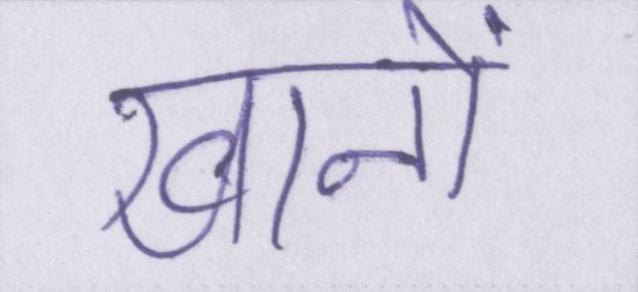 खानों